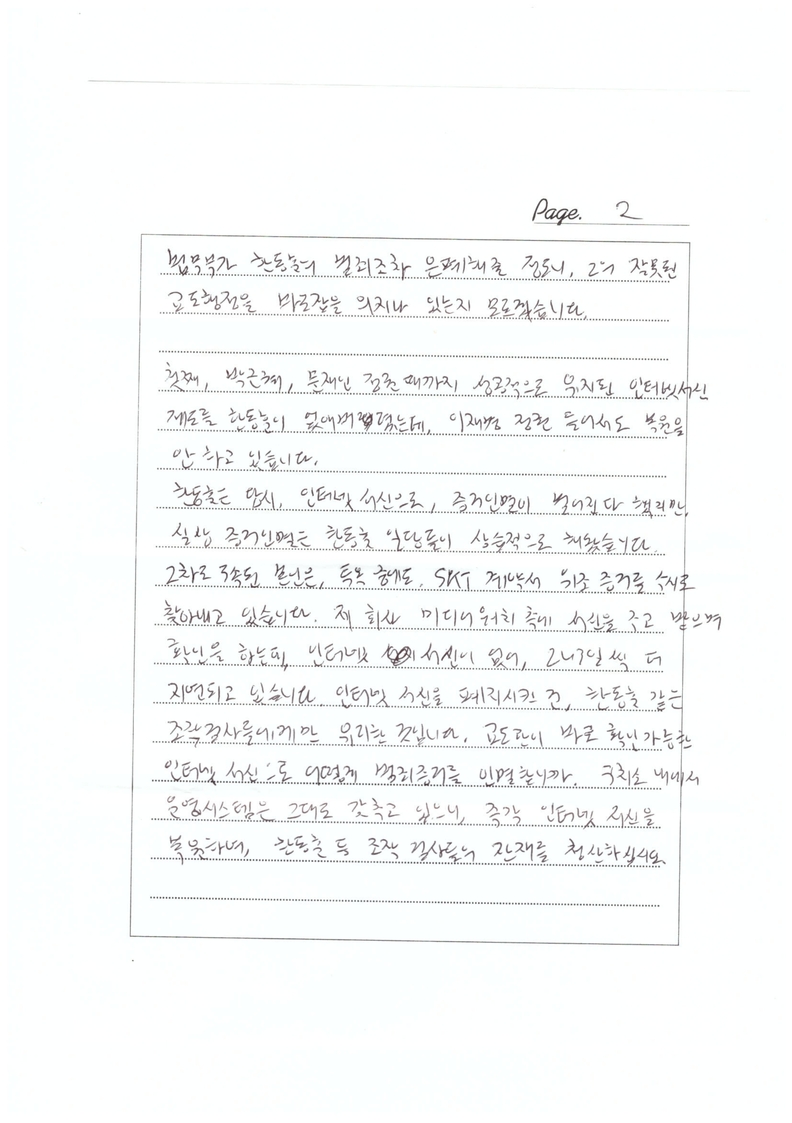 Page. 2
법무부가 한동훈의 범죄조차 은폐해줄 정도니, 그의 잘못된
교도행정을 바로잡을 의지나 있는지 모르겠습니다.
첫째, 박근혜, 문재인 정권 때까지 성공적으로 유지된 인터넷서신
제도를 한동훈이 없애버렸는데, 이재명 정권 들어서도 복원을
안 하고 있습니다.
한동훈은 당시, 인터넷 서신으로, 증거인멸이 벌어진다 했지만,
실상 증거인멸은 한동훈 일당들이 상습적으로 해왔습니다.
2차로 구속된 본인은, 투옥 중에도, SKT 계약서 위조 증거를 수시로
찾아내고 있습니다. 제 회사 미디어워치 측에 서신을 주고 받으며
확인을 하는데, 인터넷 서신이 없어, 2니3일씩 더
지연되고 있습니다. 인터넷 서신을 폐지시킨 건, 한동훈 같은
조작검사들에게만 유리한 것입니다. 교도관이 바로 확인가능한
인터넷 서신으로 어떻게 범죄증거를 인멸합니까. 구치소 내에서
운영시스템은 그대로 갖추고 있으니, 즉각 인터넷 서신을
복원하여, 한동훈 등 조작 검사들의 잔재를 청산하십시오.